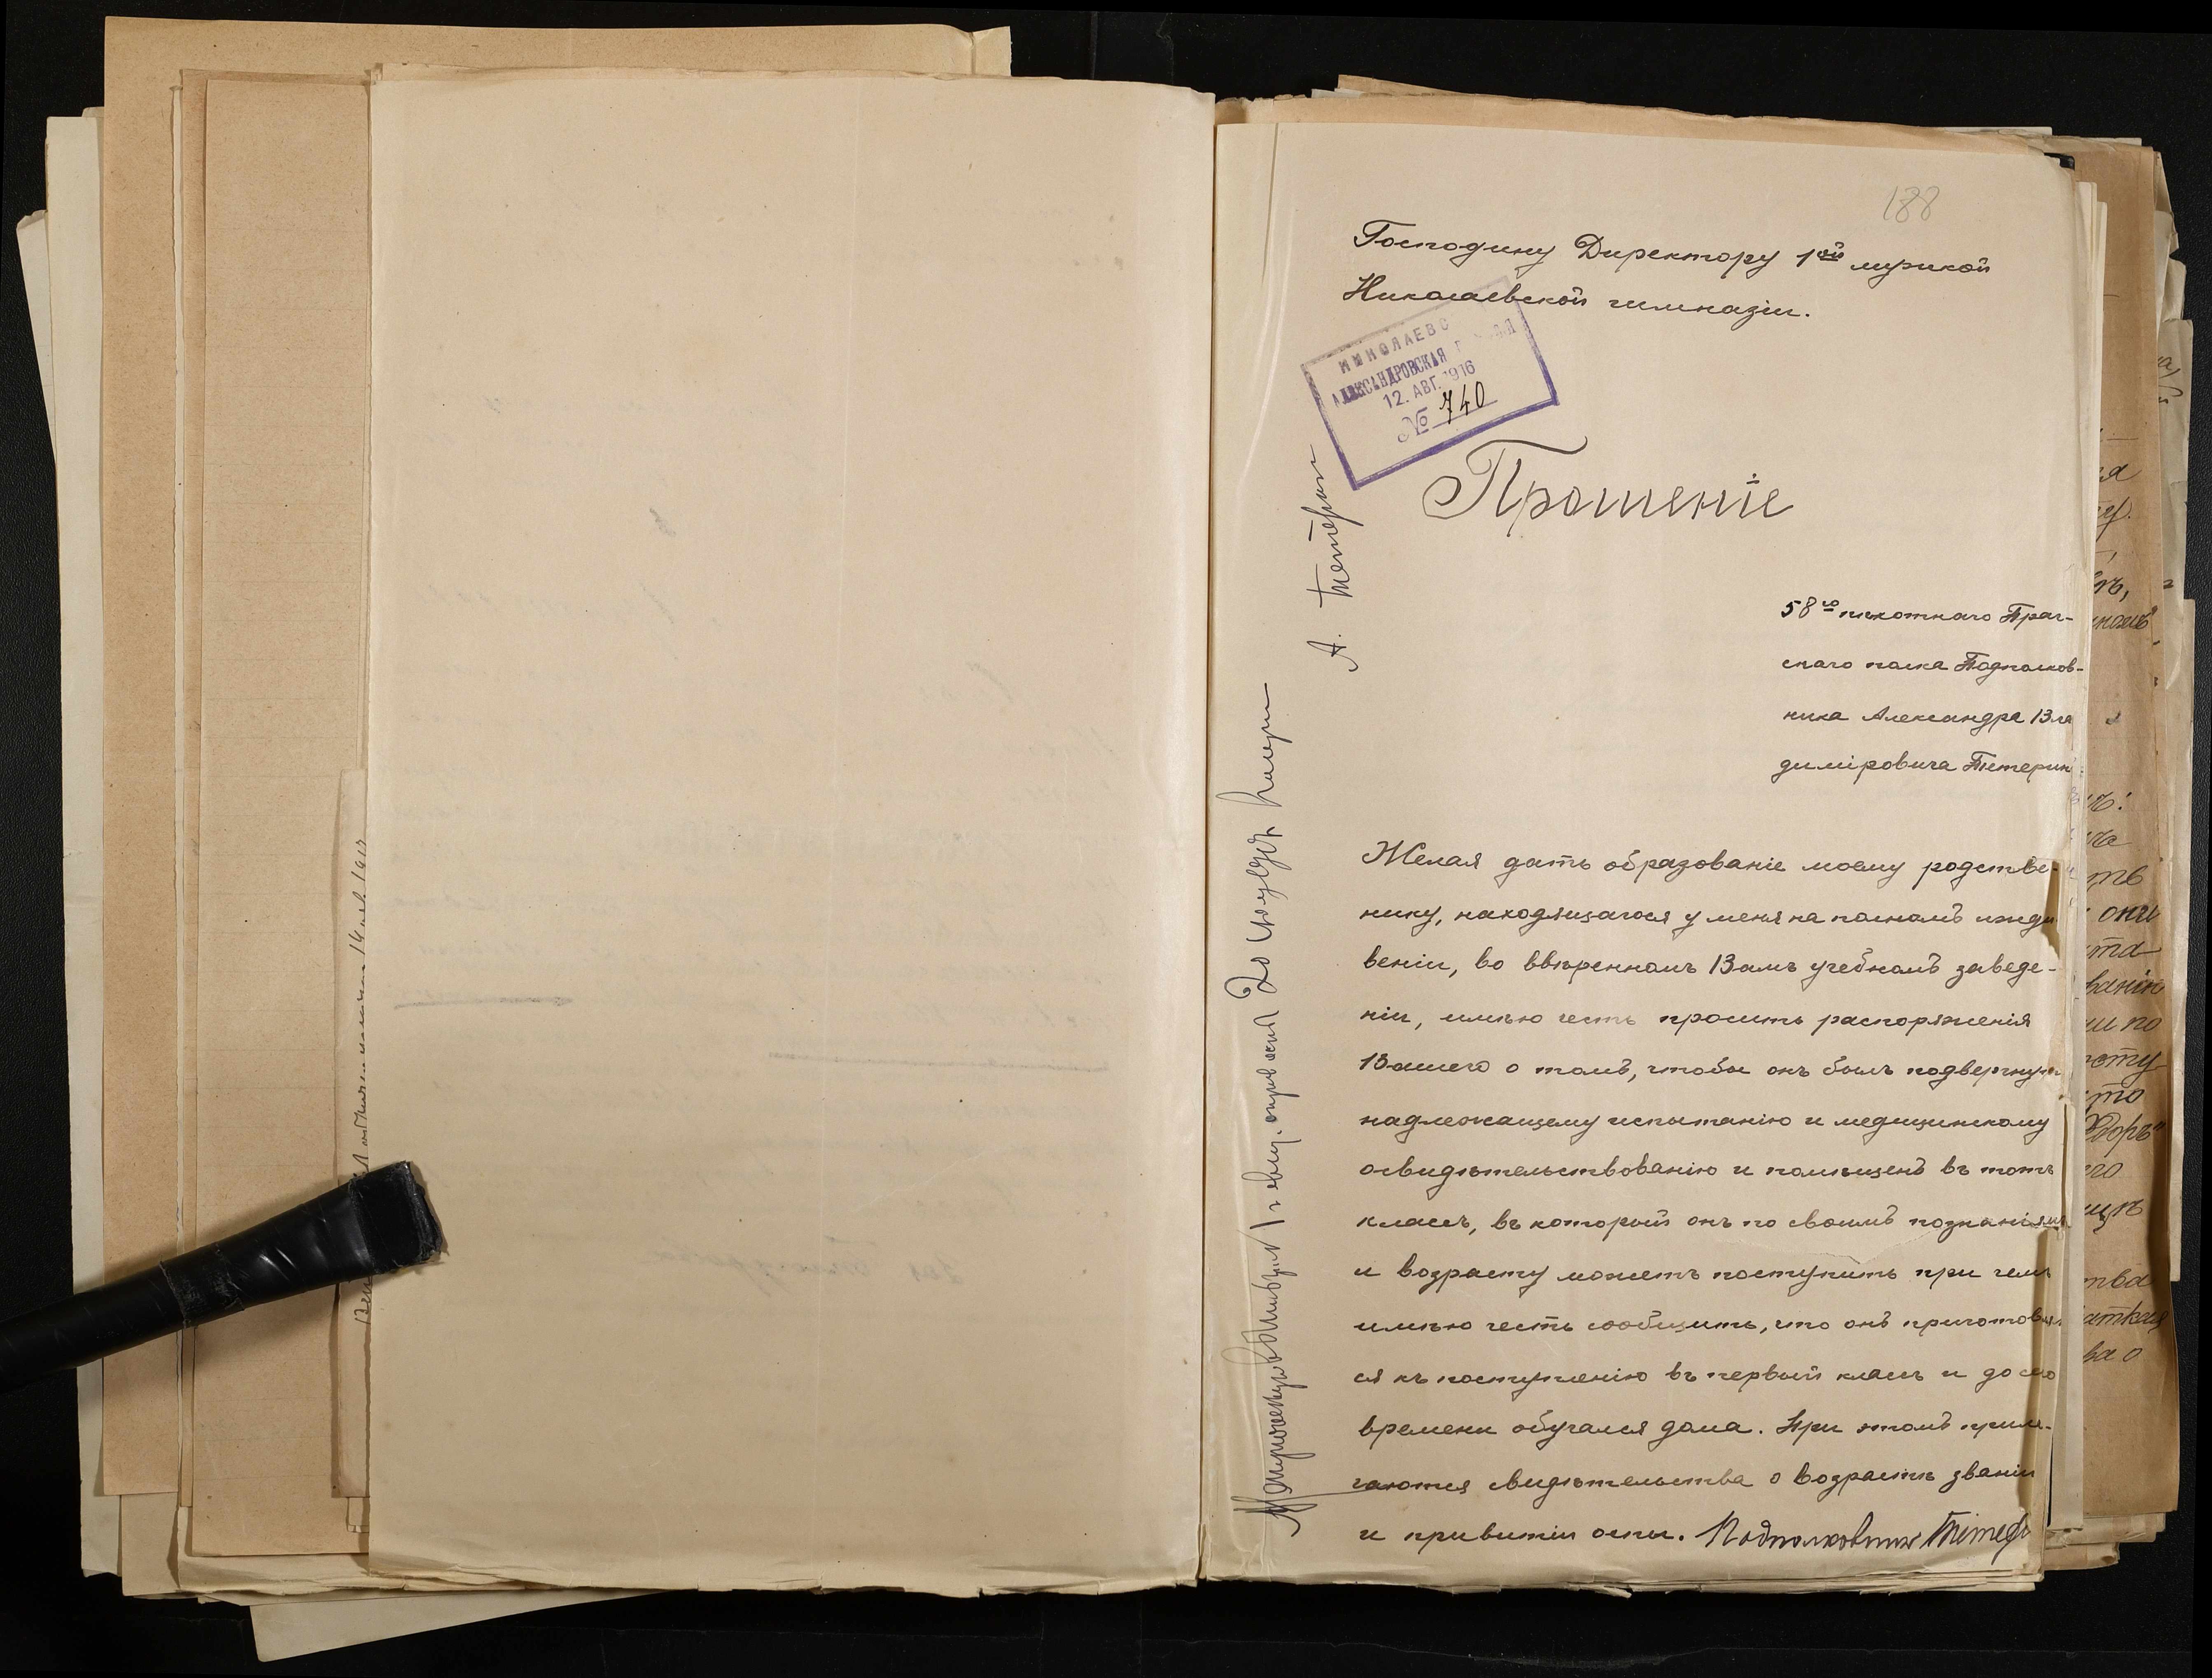 188
Господину Директору 1ой мужской
Николаевской гимназіи.
НИКОЛАЕВС
АЛЕКСАНДРОВСКАЯ
12. АВГ. 1916
№ 740
Прошеніе
58го пѣхотнаго Праг-
скаго полка Подполков-
ника Александра Вла
диміровича Тетерин
Желая дать образованіе моему родстве-
нику, находящагося у меня на полномъ ижди
веніи, во ввѣренномъ Вамъ учебномъ заведе-
ніи, имѣю честь просить распоряженія
Вашего о томъ, чтобы онъ былъ подвергнут
надлежащему испытанію и медицинскому
освидѣтельствованію и помѣщенъ въ тотъ
классъ, въ который онъ по своимъ познаніямъ
и возрасту можетъ поступить при чемъ
имѣю честь сообщить, что онъ приготовлял
ся къ поступленію въ первый классъ и до сего
времени обучался дома. При этомъ прила-
гаются свидѣтельства о возрастѣ званіи
и привитіи оспы. Подполковникъ Тетер
А. Тетерин